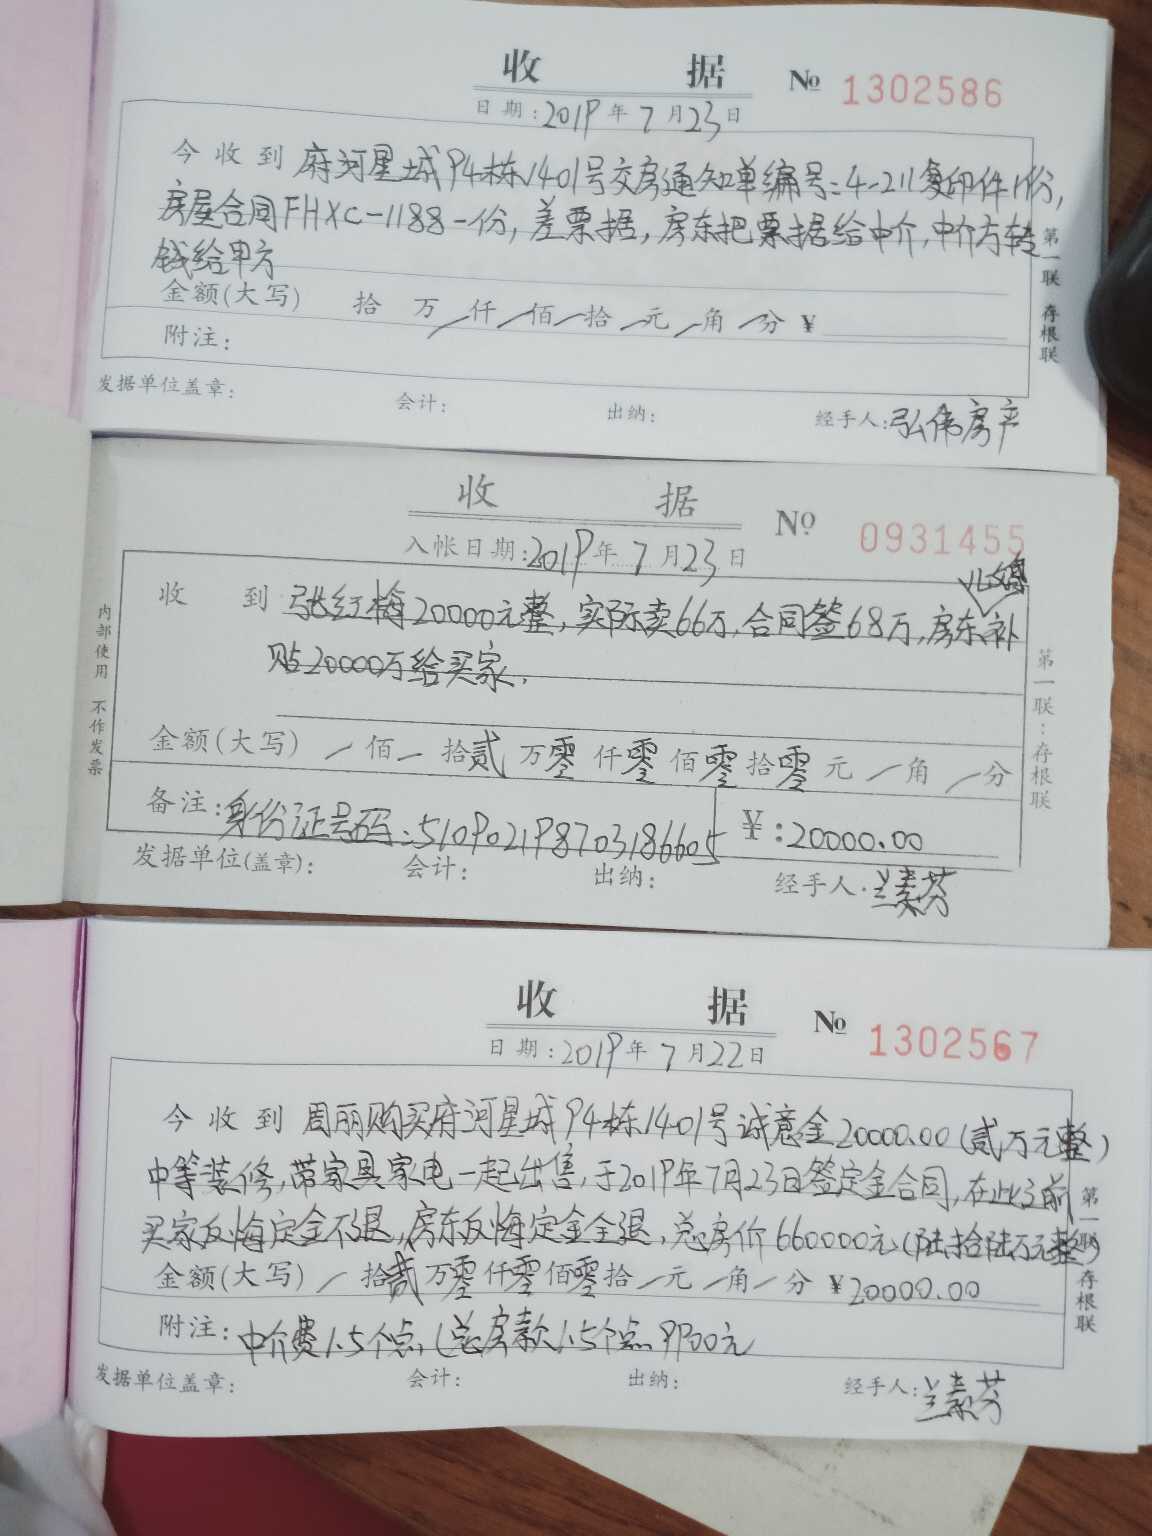 收 据 № 1302586
日期:2019年7月23日
今收到 府河星城94栋1401号交房通知单编号:4-211复印件1份,
房屋合同FHXC-1188一份,差票据,房东把票据给中介,中介方转
钱给甲方
金额(大写) 拾 万 仟 佰 拾 元 角 分 ¥
附注:
发据单位盖章: 会计: 出纳: 经手人:弘伟房产
第一联 存根联
收 据 № 0931455
入帐日期:2019年7月23日
收 到 张红梅20000元整,实际卖66万,合同签68万,房东补
贴20000万给买家.
金额(大写) 佰 拾贰万零仟零佰零拾零元 角 分
备注:身份证号码:510902198703186605 ¥:20000.00
发据单位(盖章): 会计: 出纳: 经手人.兰素芬
内部使用 不作发票
第一联:存根联
收 据 № 1302567
日期:2019年7月22日
今收到 周丽购买府河星城94栋1401号诚意金20000.00(贰万元整)
中等装修,带家具家电一起出售,于2019年7月23日签定金合同,在此之前
买家反悔定金不退,房东反悔定金全退,总房价660000元(陆拾陆万元整)
金额(大写) 拾贰万零仟零佰零拾 元 角 分 ¥20000.00
附注:中介费1.5个点,(总房款1.5个点9900元
发据单位盖章: 会计: 出纳: 经手人:兰素芬
第一联 存根联